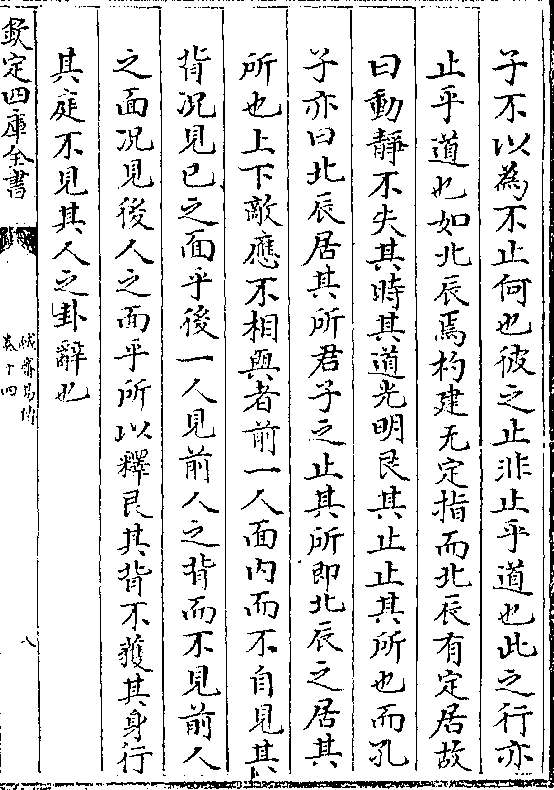 子不以為不止何也彼之止非止乎道也此之行亦
止乎道也如北辰焉杓建无定指而北辰有定居故
曰動靜不失其時其道光明艮其止止其所也而孔
子亦曰北辰居其所君子之止其所即北辰之居其
所也上下敵應不相與者前一人面内而不自見其
背况見已之面乎後一人見前人之背而不見前人
之面况見後人之面乎所以釋艮其背不獲其身行
其庭不見其人之卦辭也
欽定四庫全書
誠齋易傳
卷十四
八